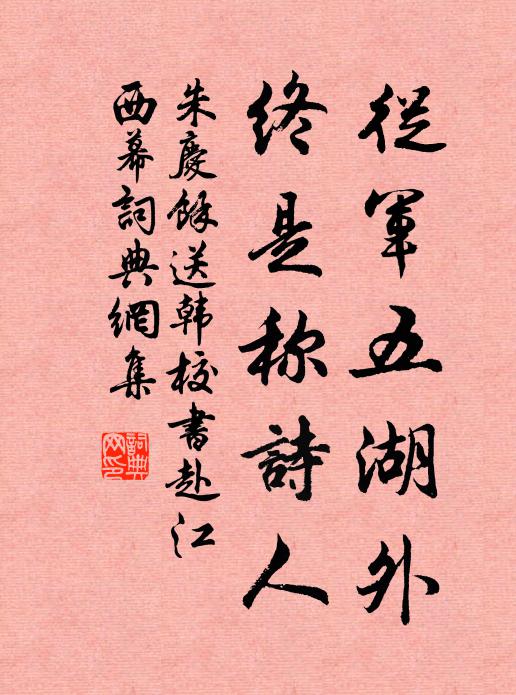 從軍五湖外
終是称詩人
朱慶餘送韩校書赴江
西幕詞典網集
詞典
网印